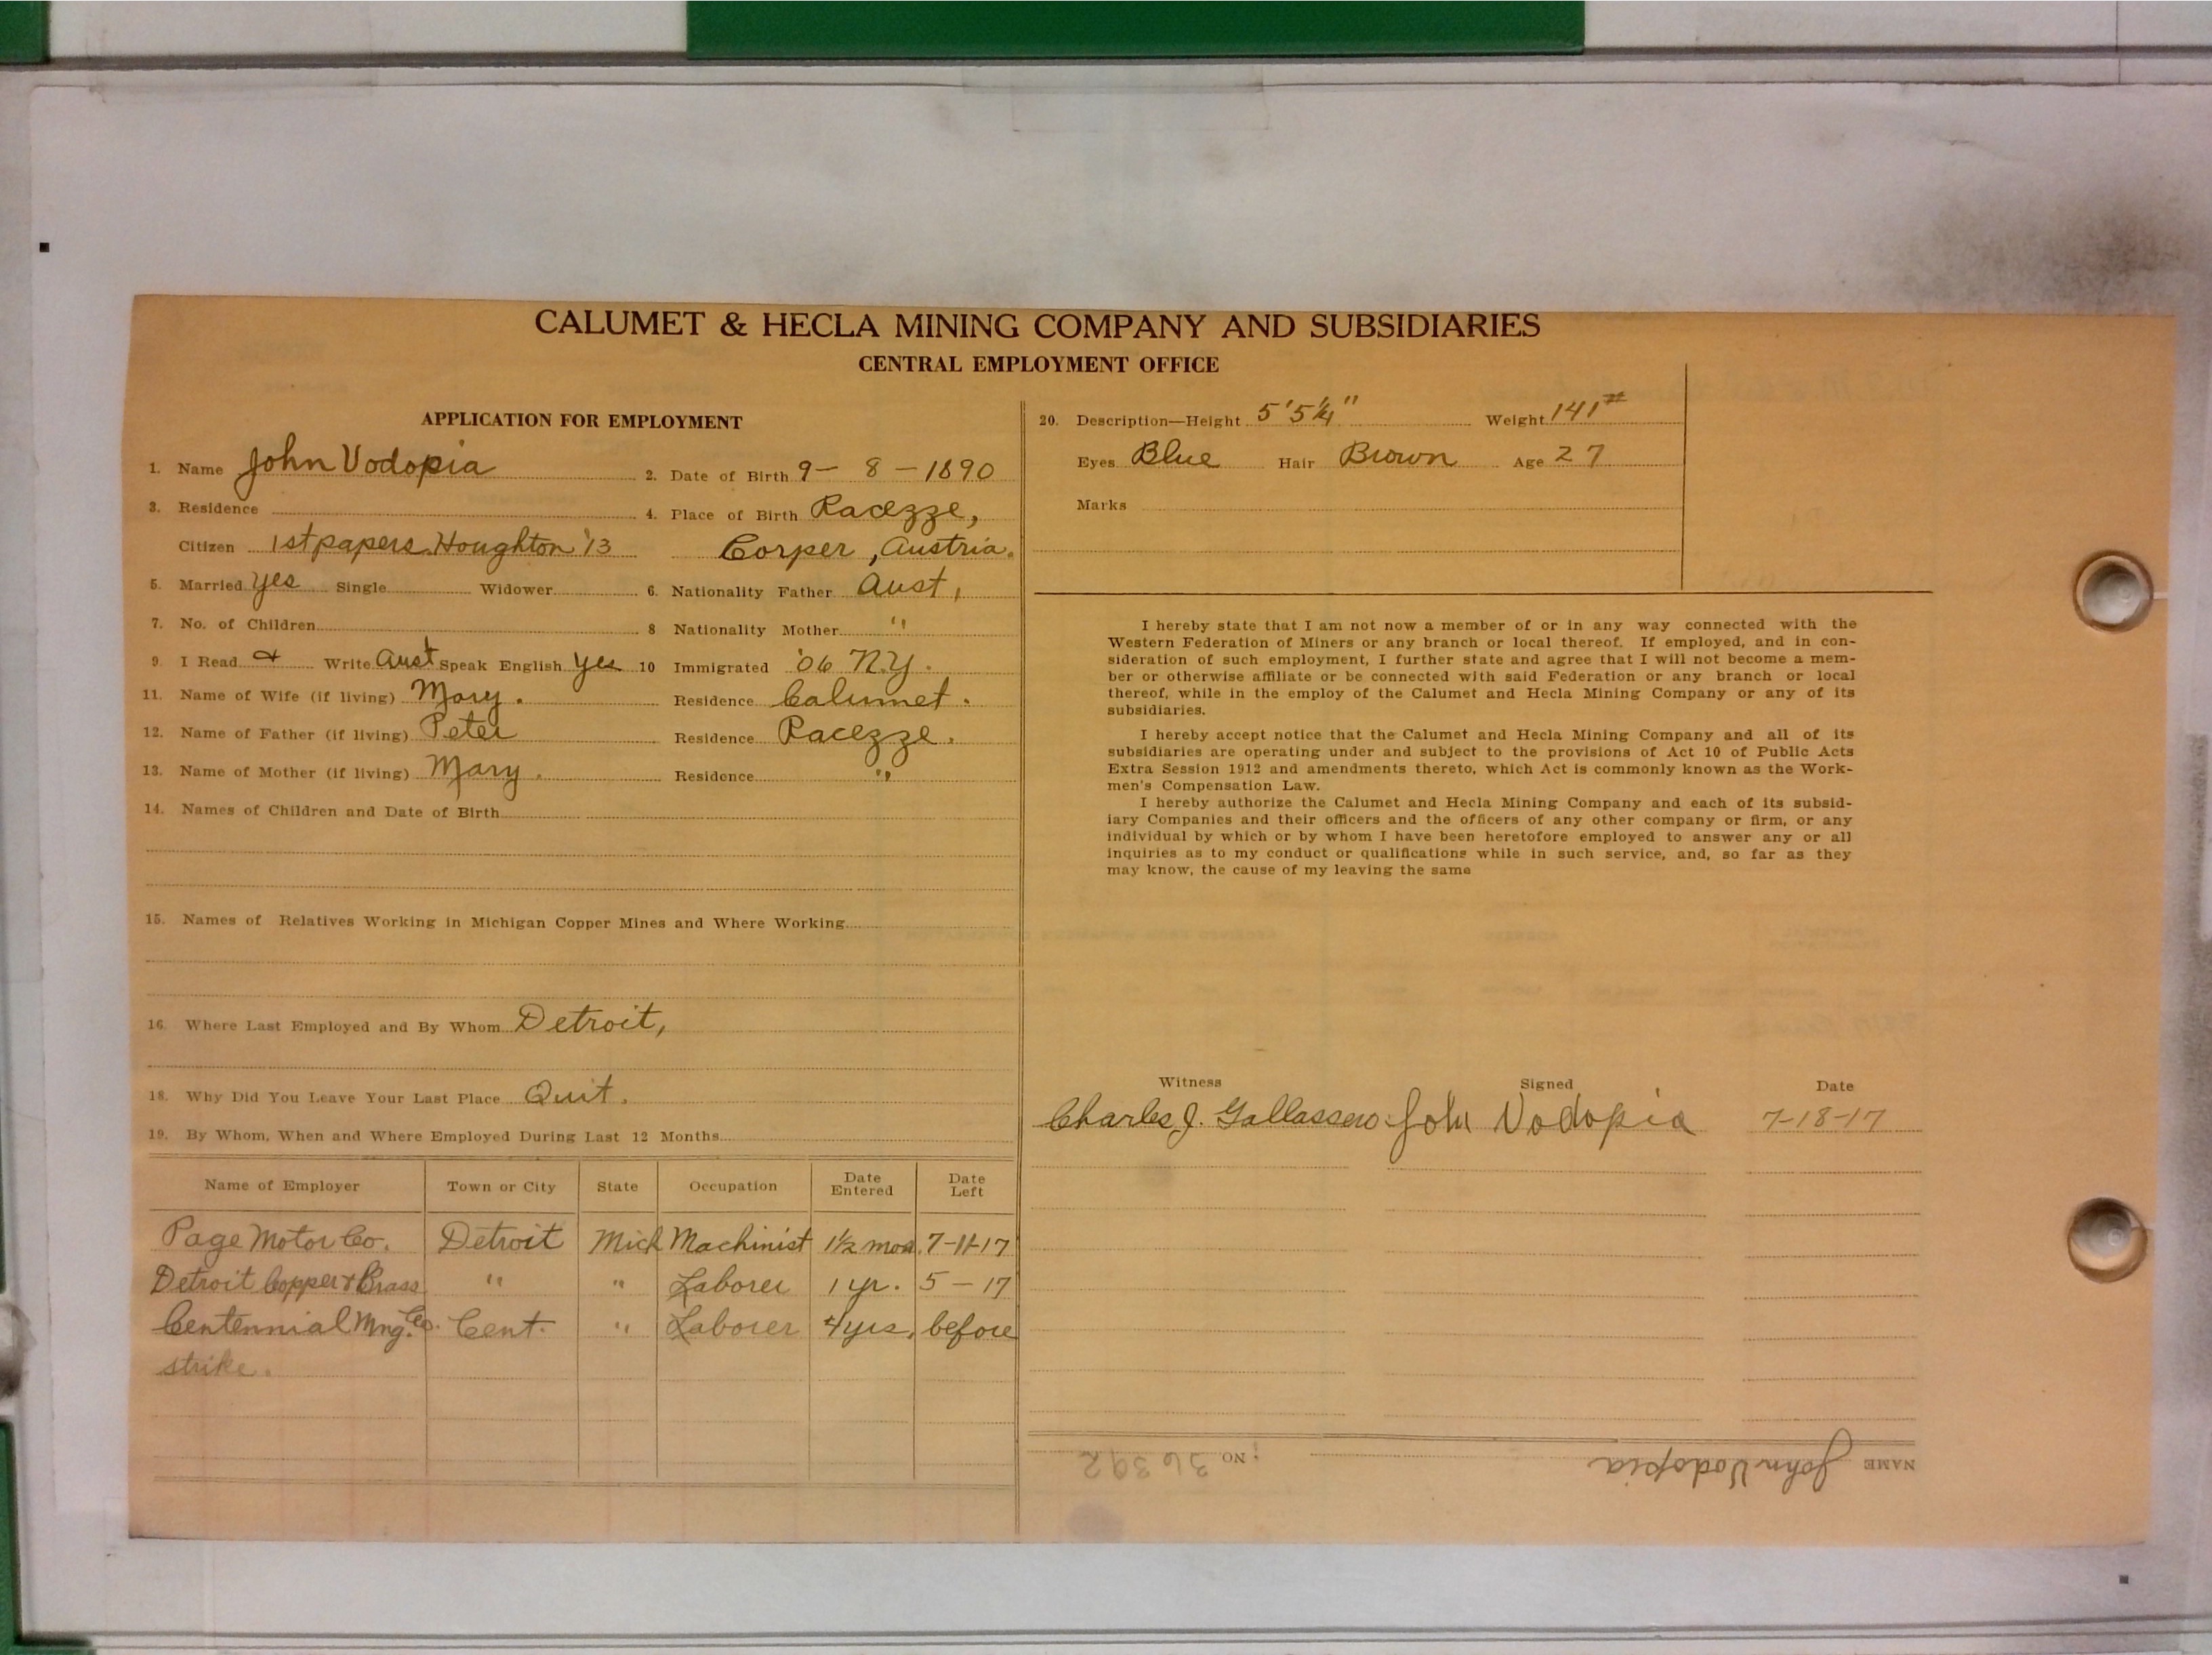 CALUMET & HECLA MINING COMPANY AND SUBSIDIARIES
CENTRAL EMPLOYMENT OFFICE
APPLICATION FOR EMPLOYMENT
1. Name John Vodopia 2. Date of Birth 9- 8-1890
3. Residence 4. Place of Birth Racezze,
Citizen 1st papers. Houghton '13 Corper, Austria.
5. Married yes Single Widower 6. Nationality Father Aust,
7. No. of Children 8 Nationality Mother "
9. I Read & Write Aust Speak English yes 10 Immigrated '06 N.Y.
11. Name of Wife (if living) Mary. Residence Calumet.
12. Name of Father (if living) Peter Residence Racezze.
13. Name of Mother (if living) Mary. Residence "
14. Names of Children and Date of Birth
15. Names of Relatives Working in Michigan Copper Mines and Where Working
16. Where Last Employed and By Whom Detroit,
18. Why Did You Leave Your Last Place Quit.
19. By Whom, When and Where Employed During Last 12 Months
Name of Employer Town or City State Occupation Date Entered Date Left
Page Motor Co. Detroit Mich Machinist 1½ mos. 7-11-17
Detroit Copper & Brass " " Laborer 1 yr. 5-17
Centennial Mng. Co. Cent. " Laborer 4 yrs, before
strike.
20. Description—Height 5'5¼" Weight 141#
Eyes Blue Hair Brown Age 27
Marks
I hereby state that I am not now a member of or in any way connected with the
Western Federation of Miners or any branch or local thereof. If employed, and in con-
sideration of such employment, I further state and agree that I will not become a mem-
ber or otherwise affiliate or be connected with said Federation or any branch or local
thereof, while in the employ of the Calumet and Hecla Mining Company or any of its
subsidiaries.
I hereby accept notice that the Calumet and Hecla Mining Company and all of its
subsidiaries are operating under and subject to the provisions of Act 10 of Public Acts
Extra Session 1912 and amendments thereto, which Act is commonly known as the Work-
men's Compensation Law.
I hereby authorize the Calumet and Hecla Mining Company and each of its subsid-
iary Companies and their officers and the officers of any other company or firm, or any
individual by which or by whom I have been heretofore employed to answer any or all
inquiries as to my conduct or qualifications while in such service, and, so far as they
may know, the cause of my leaving the same
Witness Signed Date
Charles J. Gallassero John Vodopia 7-18-17
NAME John Vodopia NO. 36392